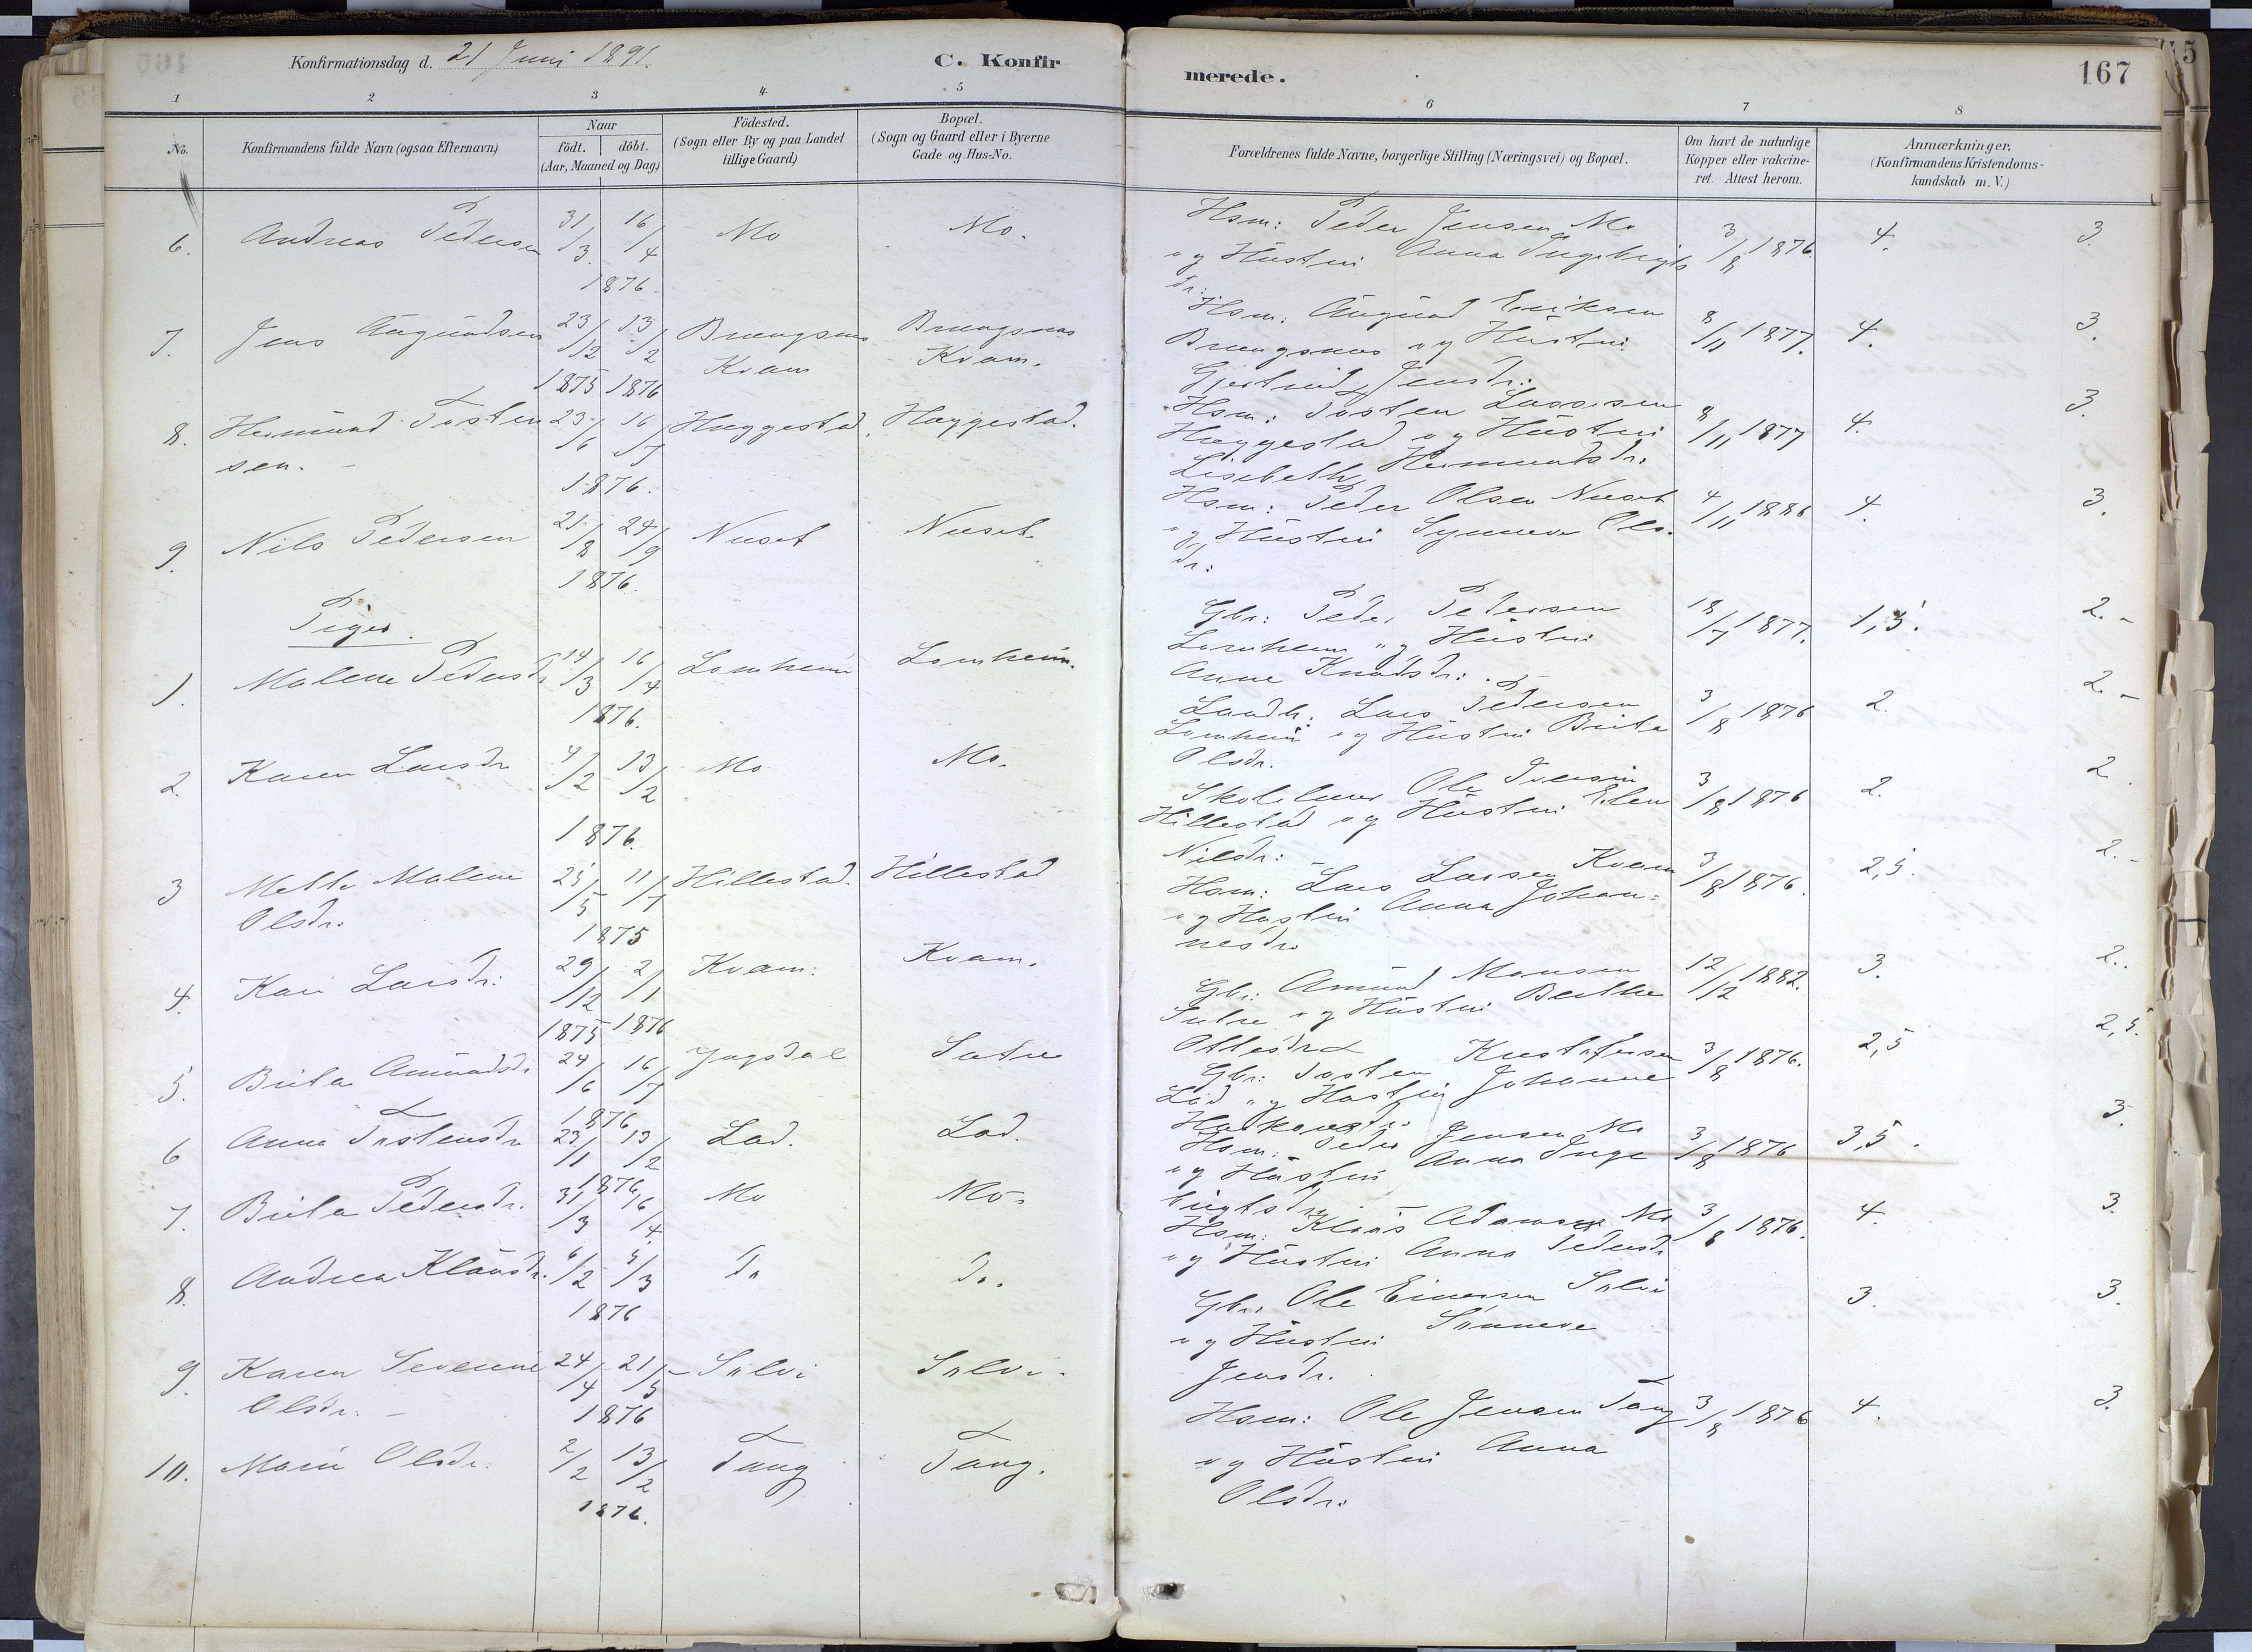 Konfirmationsdag d. 21 Juni 1891. C. Konfirmerede. 167
1 2 3 4 5 6 7 8
No. Konfirmandens fulde Navn (ogsaa Efternavn) Naar födt. döbt. (Aar, Maaned og Dag) Födested. (Sogn eller By og paa Landet tillige Gaard) Bopæl. (Sogn og Gaard eller i Byerne Gade og Hus-No. Forældrenes fulde Navne, borgerlige Stilling (Næringsvei) og Bopæl. Om havt de naturlige Kopper eller vakcineret. Attest herom. Anmærkninger. (Konfirmandens Kristendomskundskab m. V.)
6. Andreas Pedersen 31/3 16/4 1876 Mo Mo. Hsm: Peder Jensen Mo og Hustru Anna Ingebrigtsdr: 3/8 1876. 4. 3.
7. Jens Augundsen 23/12 1875 13/2 1876 Kvam Kvam. Hsm: Augund Eriksen og Hustru Gjertrud Jensdr: 8/11 1877. 4. 3.
8. Hermund Tostensen. 23/6 16/7 1876. Hæggestad. Hæggestad. Hsm: Tosten Lassesen Hæggestad og Hustru Lisebeth Hermundsdr: 8/11 1877 4. 3.
9. Nils Pedersen 21/8 24/9 1876. Nueset Nueset. Hsm: Peder Olsen Nueset og Hustru Synneve Olsdr: 4/11 1886 4. 3.
Piger.
1. Malene Pedersdr 14/3 16/4 1876. Lomheim Lomheim. Gbr: Peder Pedersen Lomheim og Hustru Anne Knudsdr: 18/7 1877. 1,5. 2.-
2. Karen Larsdr 4/2 13/2 1876. Mo Mo. Landh: Lars Pedersen Lomheim og Hustru Brita Olsdr. 3/8 1876 2. 2.-
3 Mette Malene Olsdr. 25/5 11/7 1875 Hillestad. Hillestad Skolelærer Ole Iversen Hillestad og Hustru Elen Nilsdr: 3/8 1876 2. 2.
4. Kari Larsdr: 29/12 1875 2/1 1876 Kvam. Kvam. Hsm: Lars Larsen Kvam og Hustru Anna Johannesdr 3/8 1876. 2,5. 2.-
5. Brita Amundsdr 24/6 16/7 1876 Sætre Gbr: Amund Monsen Sætre og Hustru Berthe Ottesdr 12/12 1882. 3. 2..
6 Anne Tostensdr 23/1 13/2 1876 Lad. Lad. Gbr: Tosten Kristofersen Lad og Hustru Johanne Haakonsdr 3/8 1876. 2,5 2,5.
7. Brita Pedersdr. 31/3 16/4 Mo Mo Hsm: Peder Jensen Mo og Hustru Anna Ingebrigtsdr 3/8 1876 3,5. 3.
8. Andrea Klausdr. 6/2 5/3 1876 do do. Hsm: Klaus Adamsen Mo og Hustru Anna Pedersdr 3/8 1876. 4. 3.
9. Karen Severine Olsdr. 24/4 21/5 1876 Solvi Solvi. Gbr. Ole Einersen Solvi og Hustru Sünneve Jensdr. 3. 3.
10. Mari Olsdr. 2/2 13/2 1876. Tang Tang. Hsm: Ole Jensen Tang og Hustru Anna Olsdr: 3/8 1876 4. 3.